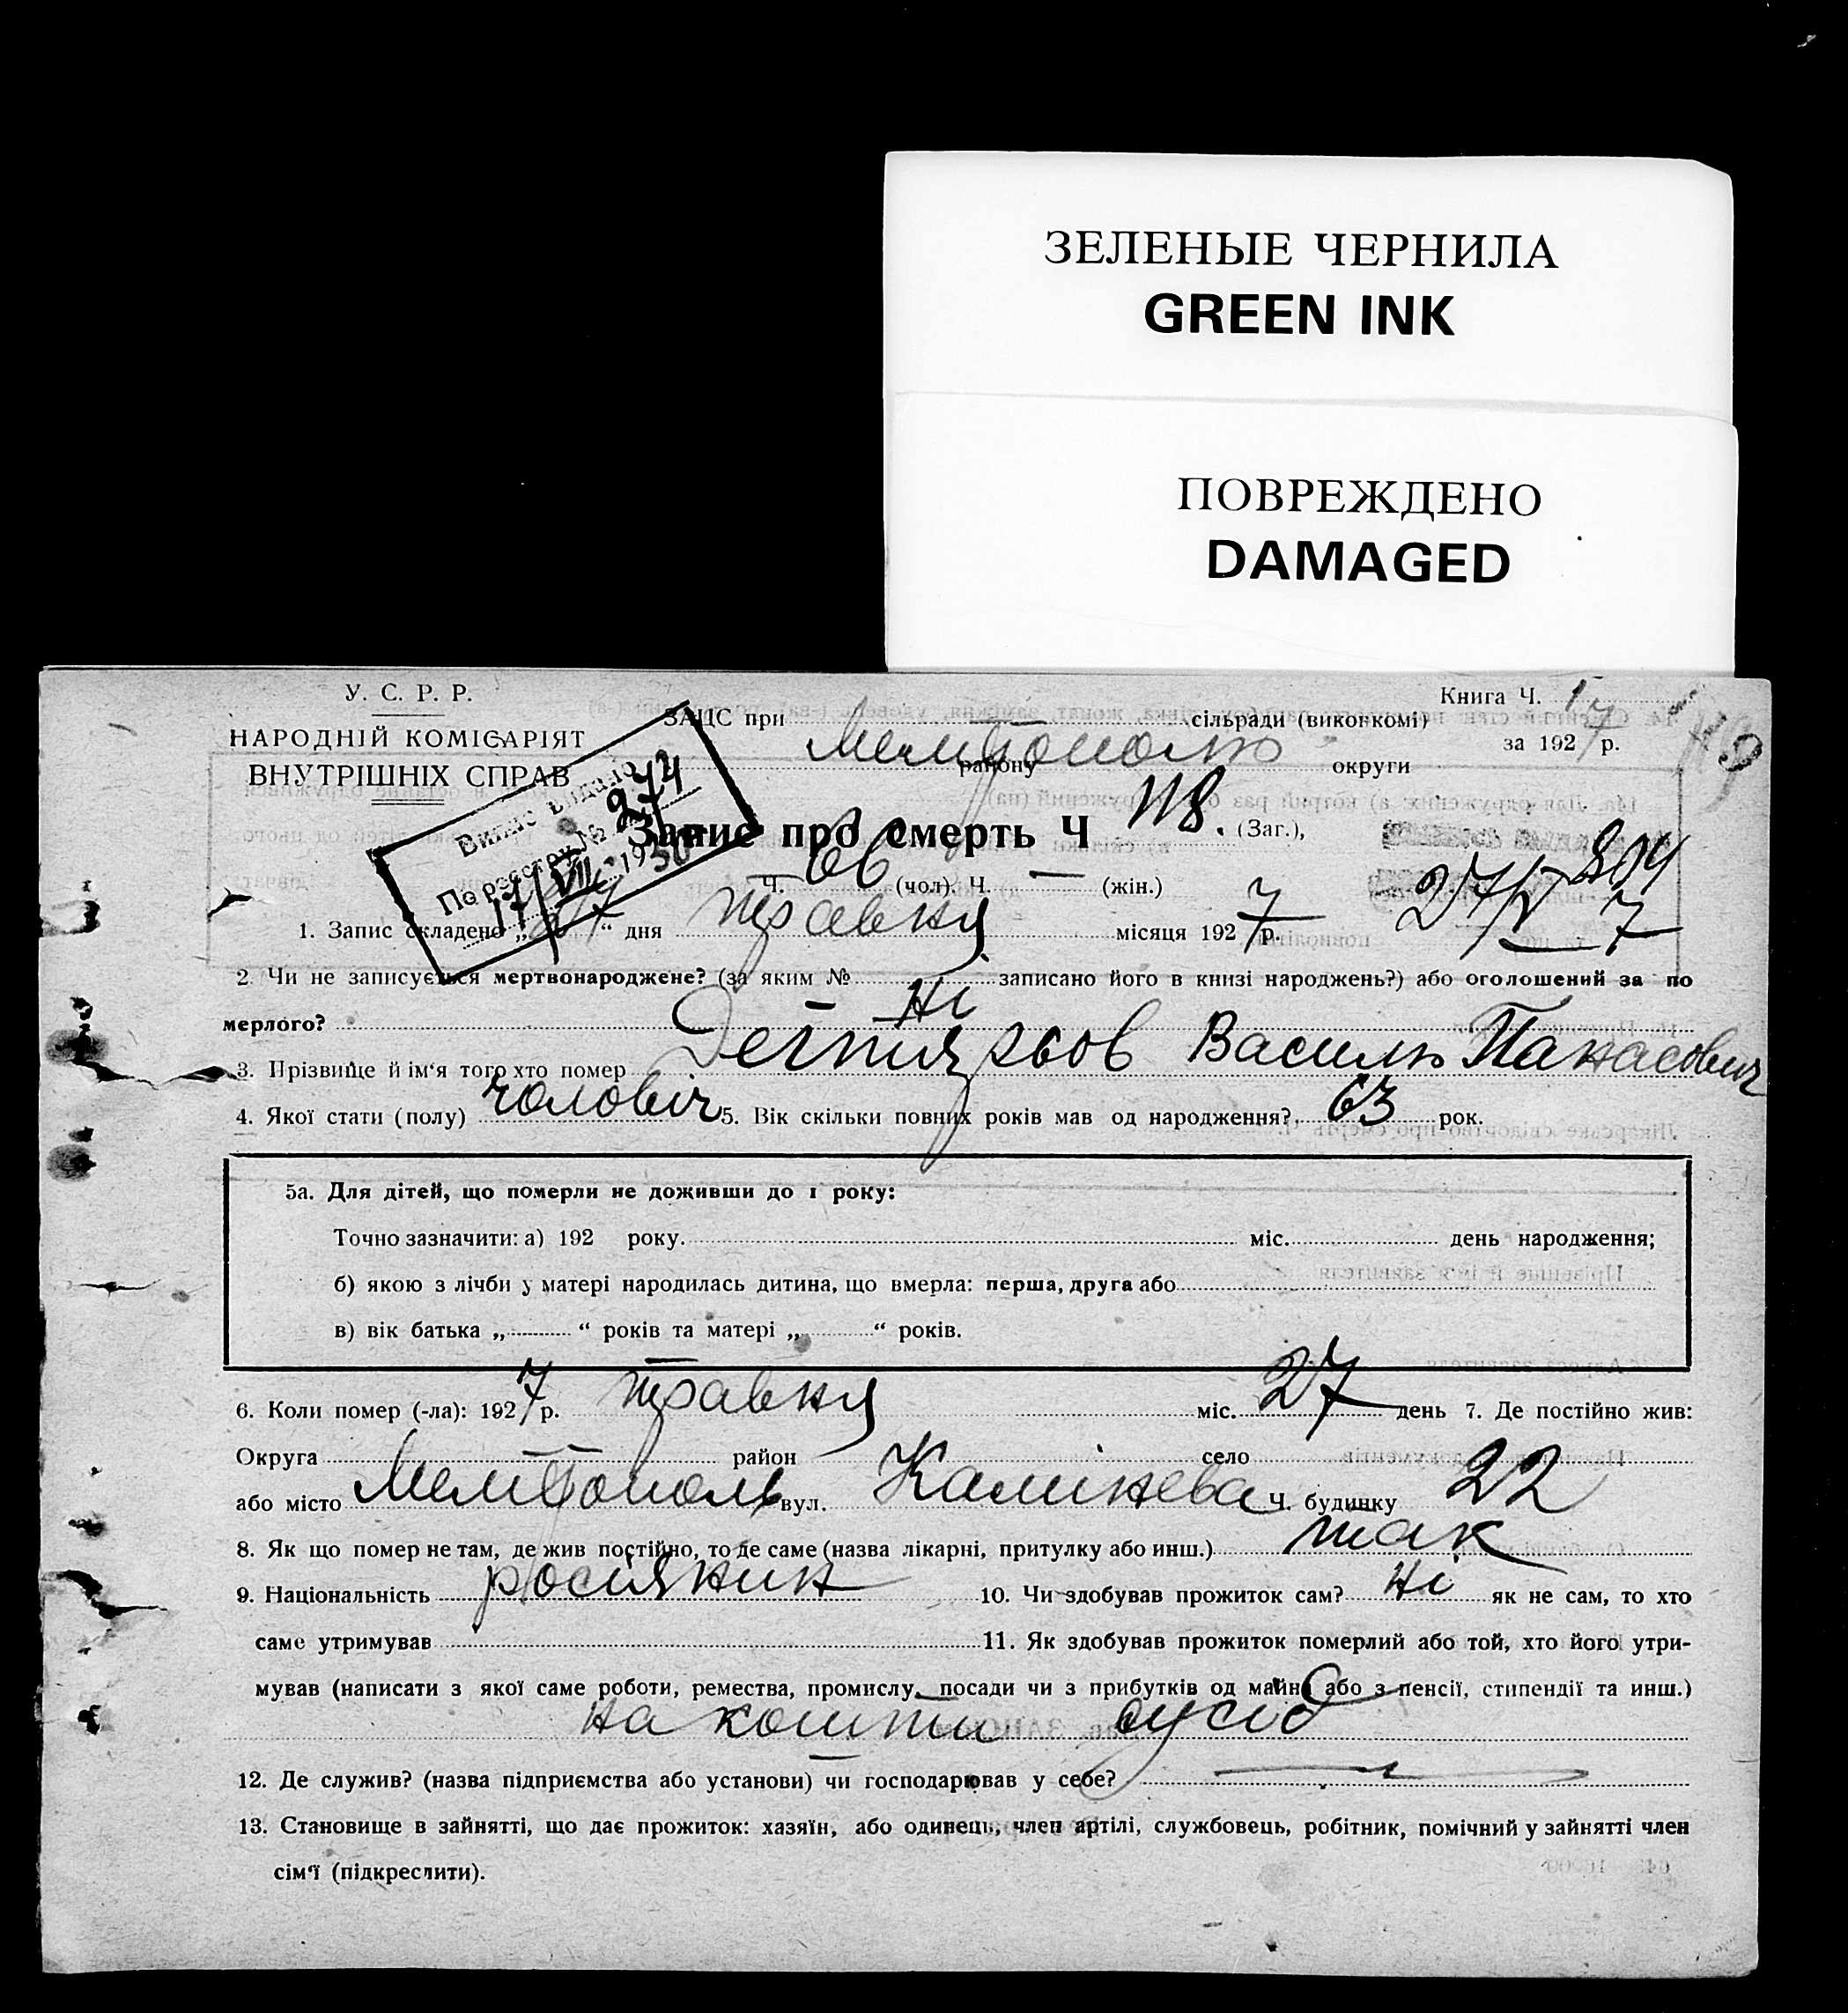 ЗЕЛЕНЫЕ ЧЕРНИЛА
GREEN INK
ПОВРЕЖДЕНО
DAMAGED
У. С. Р. Р.
НАРОДНІЙ КОМІСАРІЯТ
ВНУТРІШНІХ СПРАВ
Книга Ч. 1
за 1927 р.
ЗАЦС при сільради (виконкомі)
Мелітополь
району округи
Випис видано
По реєстру № 274
17/VII 1930
Запис про смерть Ч 118. (Заг.),
Ч. 66 (чол). Ч. — (жін.)
804
27/V 7
1. Запис складено „27“ дня травня місяця 1927 р.
2. Чи не записується мертвонароджене? (за яким № записано його в книзі народжень?) або оголошений за по
мерлого? Ні
3. Прізвище й ім'я того хто помер Дегтярьов Василь Панасович
4. Якої стати (полу) чоловіч 5. Вік скільки повних років мав од народження? 63 рок.
5а. Для дітей, що померли не доживши до 1 року:
Точно зазначити: а) 192 року. міс. день народження;
б) якою з лічби у матері народилась дитина, що вмерла: перша, друга або
в) вік батька „ “ років та матері „ “ років.
6. Коли помер (-ла): 1927 р. травня міс. 27 день 7. Де постійно жив:
Округа район село
або місто Мелітополь вул. Калінєва Ч. будинку 22
8. Як що помер не там, де жив постійно, то де саме (назва лікарні, притулку або инш.) так
9. Національність росіянин 10. Чи здобував прожиток сам? ні як не сам, то хто
саме утримував 11. Як здобував прожиток померлий або той, хто його утри-
мував (написати з якої саме роботи, ремества, промислу, посади чи з прибутків од майна або з пенсії, стипендії та инш.)
на кошти
12. Де служив? (назва підприємства або установи) чи господарював у себе? —
13. Становище в зайнятті, що дає прожиток: хазяїн, або одинець, член артілі, службовець, робітник, помічний у зайнятті член
сім'ї (підкреслити).